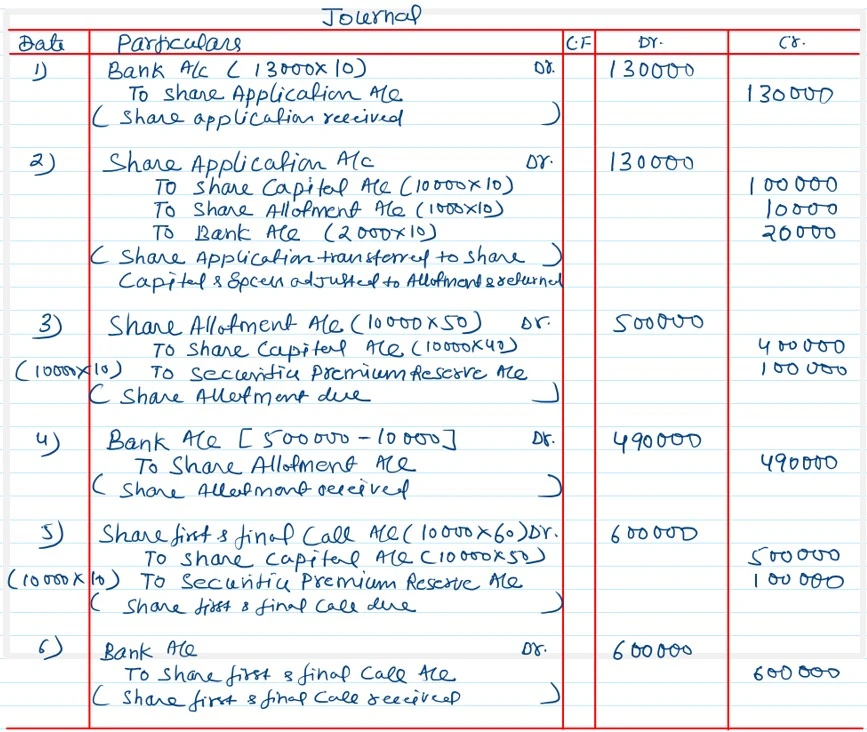 Journal
Date Particulars C.F Dr. Cr.
1) Bank A/c (13000x10) Dr. 130000
To share Application A/c 130000
( Share application received )
2) Share Application A/c Dr. 130000
To share Capital A/c (10000x10) 100000
To Share Allotment A/c (1000x10) 10000
To Bank A/c (2000x10) 20000
( Share Application transferred to share )
Capital & Excess adjusted to Allotment & returned
3) Share Allotment A/c (10000x50) Dr. 500000
To Share Capital A/c (10000x40) 400000
(10000x10) To Securities Premium Reserve A/c 100000
( Share Allotment due )
4) Bank A/c [500000-10000] Dr. 490000
To Share Allotment A/c 490000
( Share Allotment received )
5) Share first & final Call A/c (10000x60) Dr. 600000
To Share Capital A/c (10000x50) 500000
(10000x10) To Securities Premium Reserve A/c 100000
( Share first & final Call due )
6) Bank A/c Dr. 600000
To Share first & final Call A/c 600000
( Share first & final Call received )